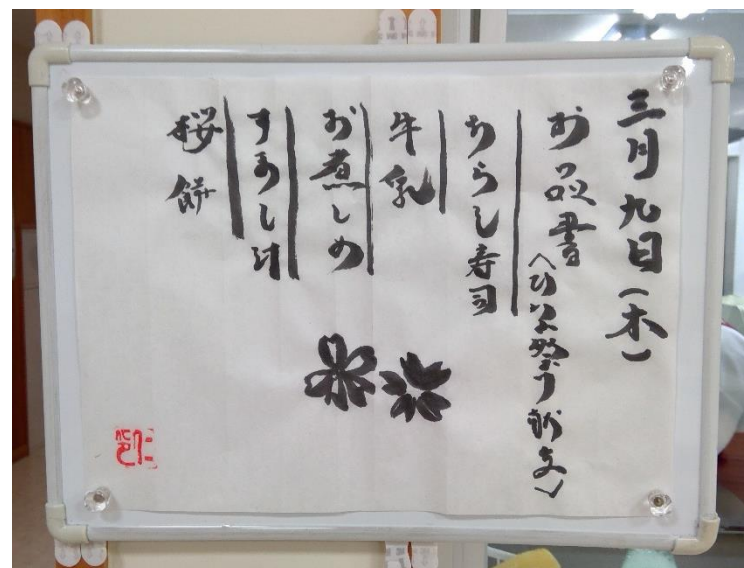 三月九日(木)
お品書〈ひな祭り献立〉
ちらし寿司
牛乳
お煮しめ
すまし汁
桜餅